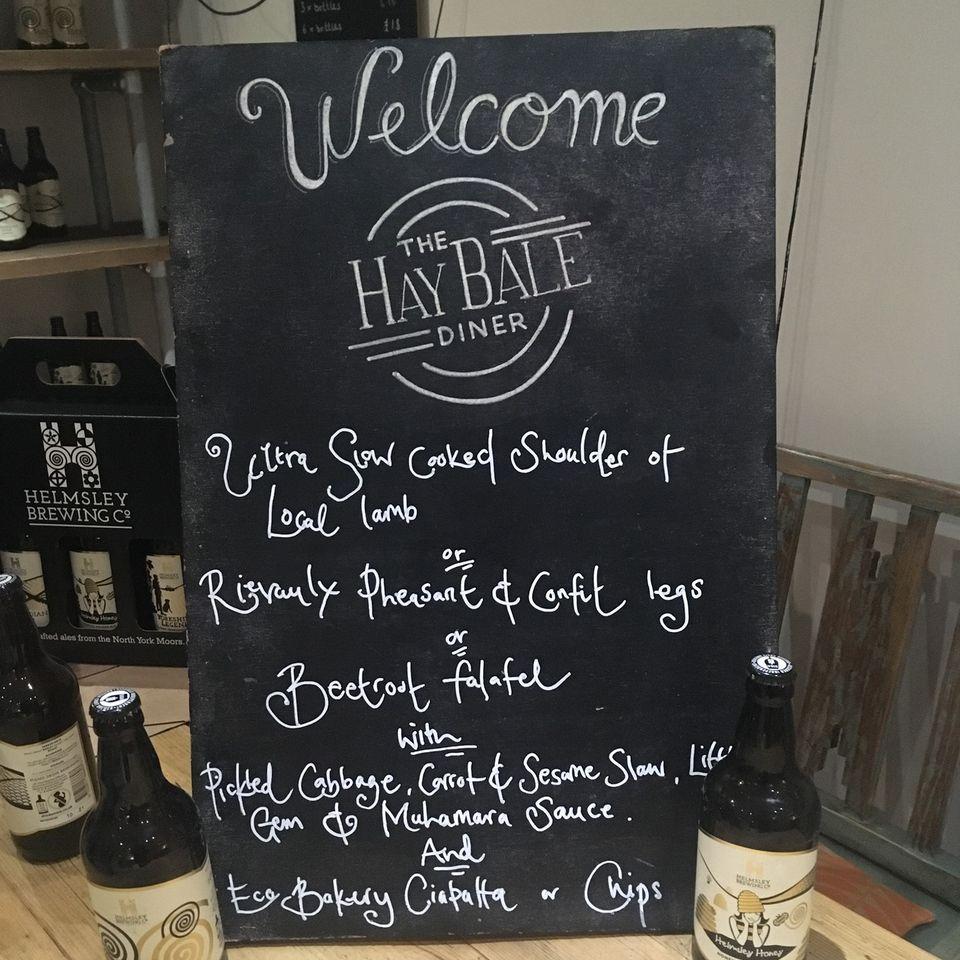 3 x bottles
6 x bottles £18
Welcome
THE
HAY BALE
DINER
Ultra Slow Cooked Shoulder of
Local lamb
or
Rievaulx Pheasant & Confit legs
or
Beetroot falafel
with
Pickled Cabbage, Carrot & Sesame Slaw,
Gem & Muhamara Sauce.
And
Eco Bakery Ciabatta or Chips
HELMSLEY
BREWING Cº
Helmsley Honey
YORKSHIRE
LEGEND
afted ales from the North York Moors.
HELMSLEY
BREWING Cº
HELMSLEY
BREWING Cº
Helmsley Honey